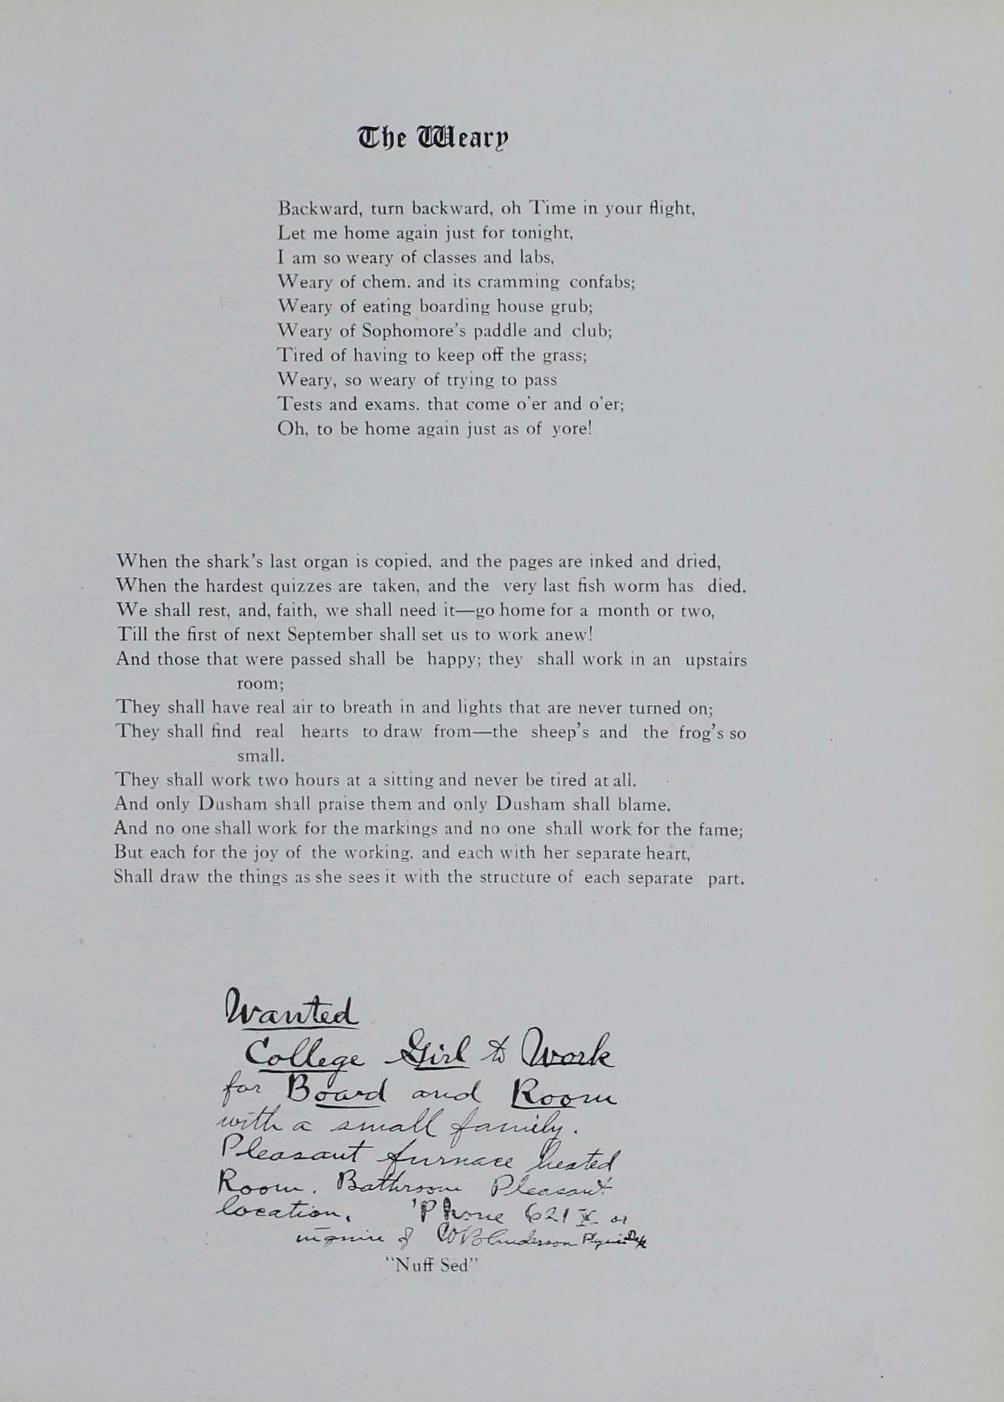 The Weary
Backward, turn backward, oh Time in your flight,
Let me home again just for tonight,
I am so weary of classes and labs,
Weary of chem. and its cramming confabs;
Weary of eating boarding house grub;
Weary of Sophomore's paddle and club;
Tired of having to keep off the grass;
Weary, so weary of trying to pass
Tests and exams. that come o'er and o'er;
Oh, to be home again just as of yore!
When the shark's last organ is copied, and the pages are inked and dried,
When the hardest quizzes are taken, and the very last fish worm has died.
We shall rest, and, faith, we shall need it—go home for a month or two,
Till the first of next September shall set us to work anew!
And those that were passed shall be happy; they shall work in an upstairs
room;
They shall have real air to breath in and lights that are never turned on;
They shall find real hearts to draw from—the sheep's and the frog's so
small.
They shall work two hours at a sitting and never be tired at all.
And only Dusham shall praise them and only Dusham shall blame.
And no one shall work for the markings and no one shall work for the fame;
But each for the joy of the working. and each with her separate heart,
Shall draw the things as she sees it with the structure of each separate part.
Wanted
College Girl to Work
for Board and Room
with a small family.
Pleasant furnace heated
Room. Bathroom Pleasant
location. 'Phone 621X or
inquire of Anderson
"Nuff Sed"